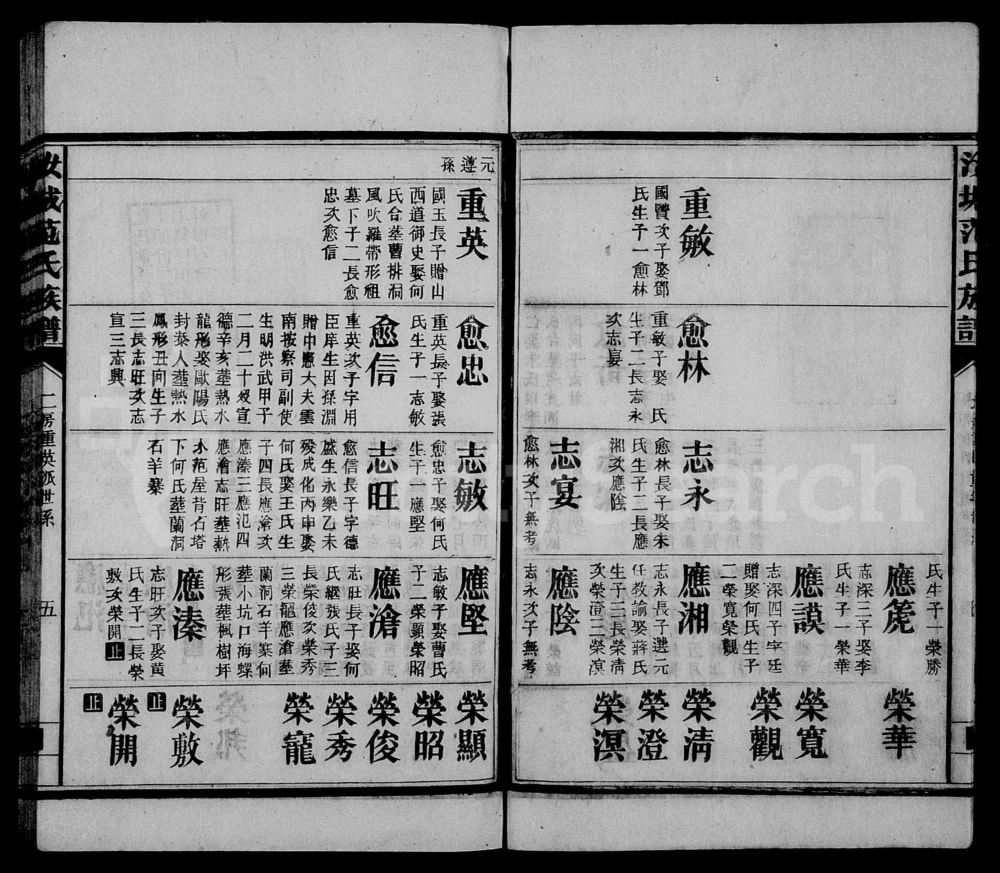 重敏
國賢次子娶鄧
氏生子一愈林
愈林
重敏子娶 氏
生子二長志永
次志宴
志永
愈林長子娶朱
氏生子二長應
湘次應陰
志宴
愈林次子無考
氏生子一榮勝
應箎
志深三子娶李
氏生子一榮華
應謨
志深四子字廷
贈娶何氏生子
二榮寬榮觀
應湘
志永長子選元
任教諭娶蔣氏
生子三長榮清
次榮澄三榮溟
應陰
志永次子無考
榮華
榮寬
榮觀
榮清
榮澄
榮溟
元遵孫
重英
國玉長子贈山
西道御史娶何
氏合塟曹排洞
風吹羅帶形祖
墓下子二長愈
忠次愈信
愈忠
重英長子娶張
氏生子一志敏
愈信
重英次子字用
臣庠生因孫淵
贈中憲大夫雲
南按察司副使
生明洪武甲子
二月二十歿宣
德辛亥塟熱水
龍形娶歐陽氏
封泰人塟熱水
鳳形丑向生子
三長志旺次志
宣三志興
志敏
愈忠子娶何氏
生子一應堅
志旺
愈信長子字德
盛生永樂乙未
歿成化丙申娶
何氏娶王氏生
子四長應滄次
應溱三應氾四
應澮志旺塟熱
水范屋背石塔
下何氏塟蘭洞
石羊寨
應堅
志敏子娶曹氏
子二榮顯榮昭
應滄
志旺長子娶何
氏繼張氏子三
長榮俊次榮秀
三榮寵應滄塟
蘭洞石羊寨何
塟小坑口海螺
形張塟楓樹坪
應溱
志旺次子娶黃
氏生子二長榮
敷次榮開 止
榮顯
榮昭
榮俊
榮秀
榮寵
榮敷
止
榮開
止
汝城范氏族譜
二房重英派世系
五